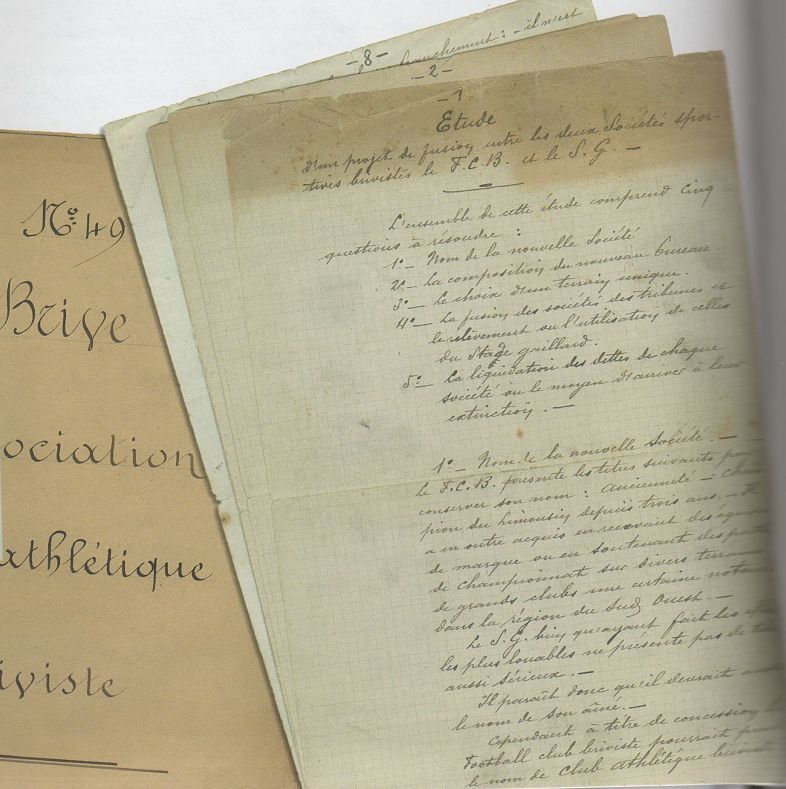 N° 49
Brive
ociation
athlétique
iviste
-8-
franchement : - il n'est
-2-
-1
Etude
d'un projet de fusion entre les deux Sociétés spor-
tives brivistes le F.C.B. et le S.G. -
L'ensemble de cette étude comprend cinq
questions à résoudre :
1° - Nom de la nouvelle Société
2° - La composition du nouveau bureau -
3° - Le choix d'un terrain unique.
4° - La fusion des sociétés des tribunes et
le relèvement ou l'utilisation de celles
du Stade gaillard.
5° - La liquidation des dettes de chaque
société ou le moyen d'arriver à leur
extinction. -
1° - Nom de la nouvelle Société. -
le F.C.B. présente les titres suivants pour
conserver son nom : ancienneté - Cham
pion du Limousin depuis trois ans. -
a en outre acquis en recevant des équi
de marque ou en soutenant des parties
de championnat sur divers terrains
de grands clubs une certaine noto
dans la région du Sud Ouest. -
Le S.G. bien qu'ayant fait les
les plus louables ne présente pas de ti
aussi sérieux. -
Il paraît donc qu'il devrait
le nom de son aîné. -
Cependant à titre de concession
Football club briviste pourrait
le nom de Club athlétique briviste